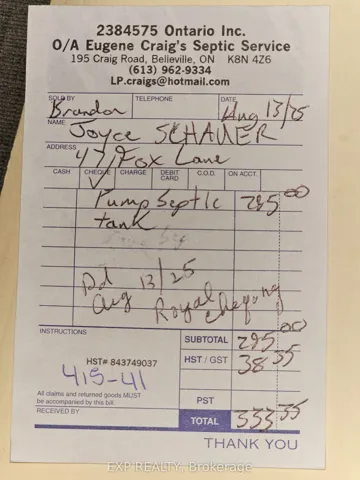 2384575 Ontario Inc.
O/A Eugene Craig's Septic Service
195 Craig Road, Belleville, ON K8N 4Z6
(613) 962-9334
LP.craigs@hotmail.com
SOLD BY TELEPHONE DATE
Brandon Aug 13/25
NAME
Joyce SCHAUER
ADDRESS
471 Fox Lane
CASH CHEQUE CHARGE DEBIT CARD C.O.D. ON ACCT.
✓
Pump Septic 295 00
tank
Pd Aug 13/25
Royal
INSTRUCTIONS
SUBTOTAL 295 00
HST# 843749037
HST / GST 38 35
415-41
All claims and returned goods MUST
be accompanied by this bill.
PST
RECEIVED BY
TOTAL 333 35
THANK YOU
EXP REALTY, Brokerage